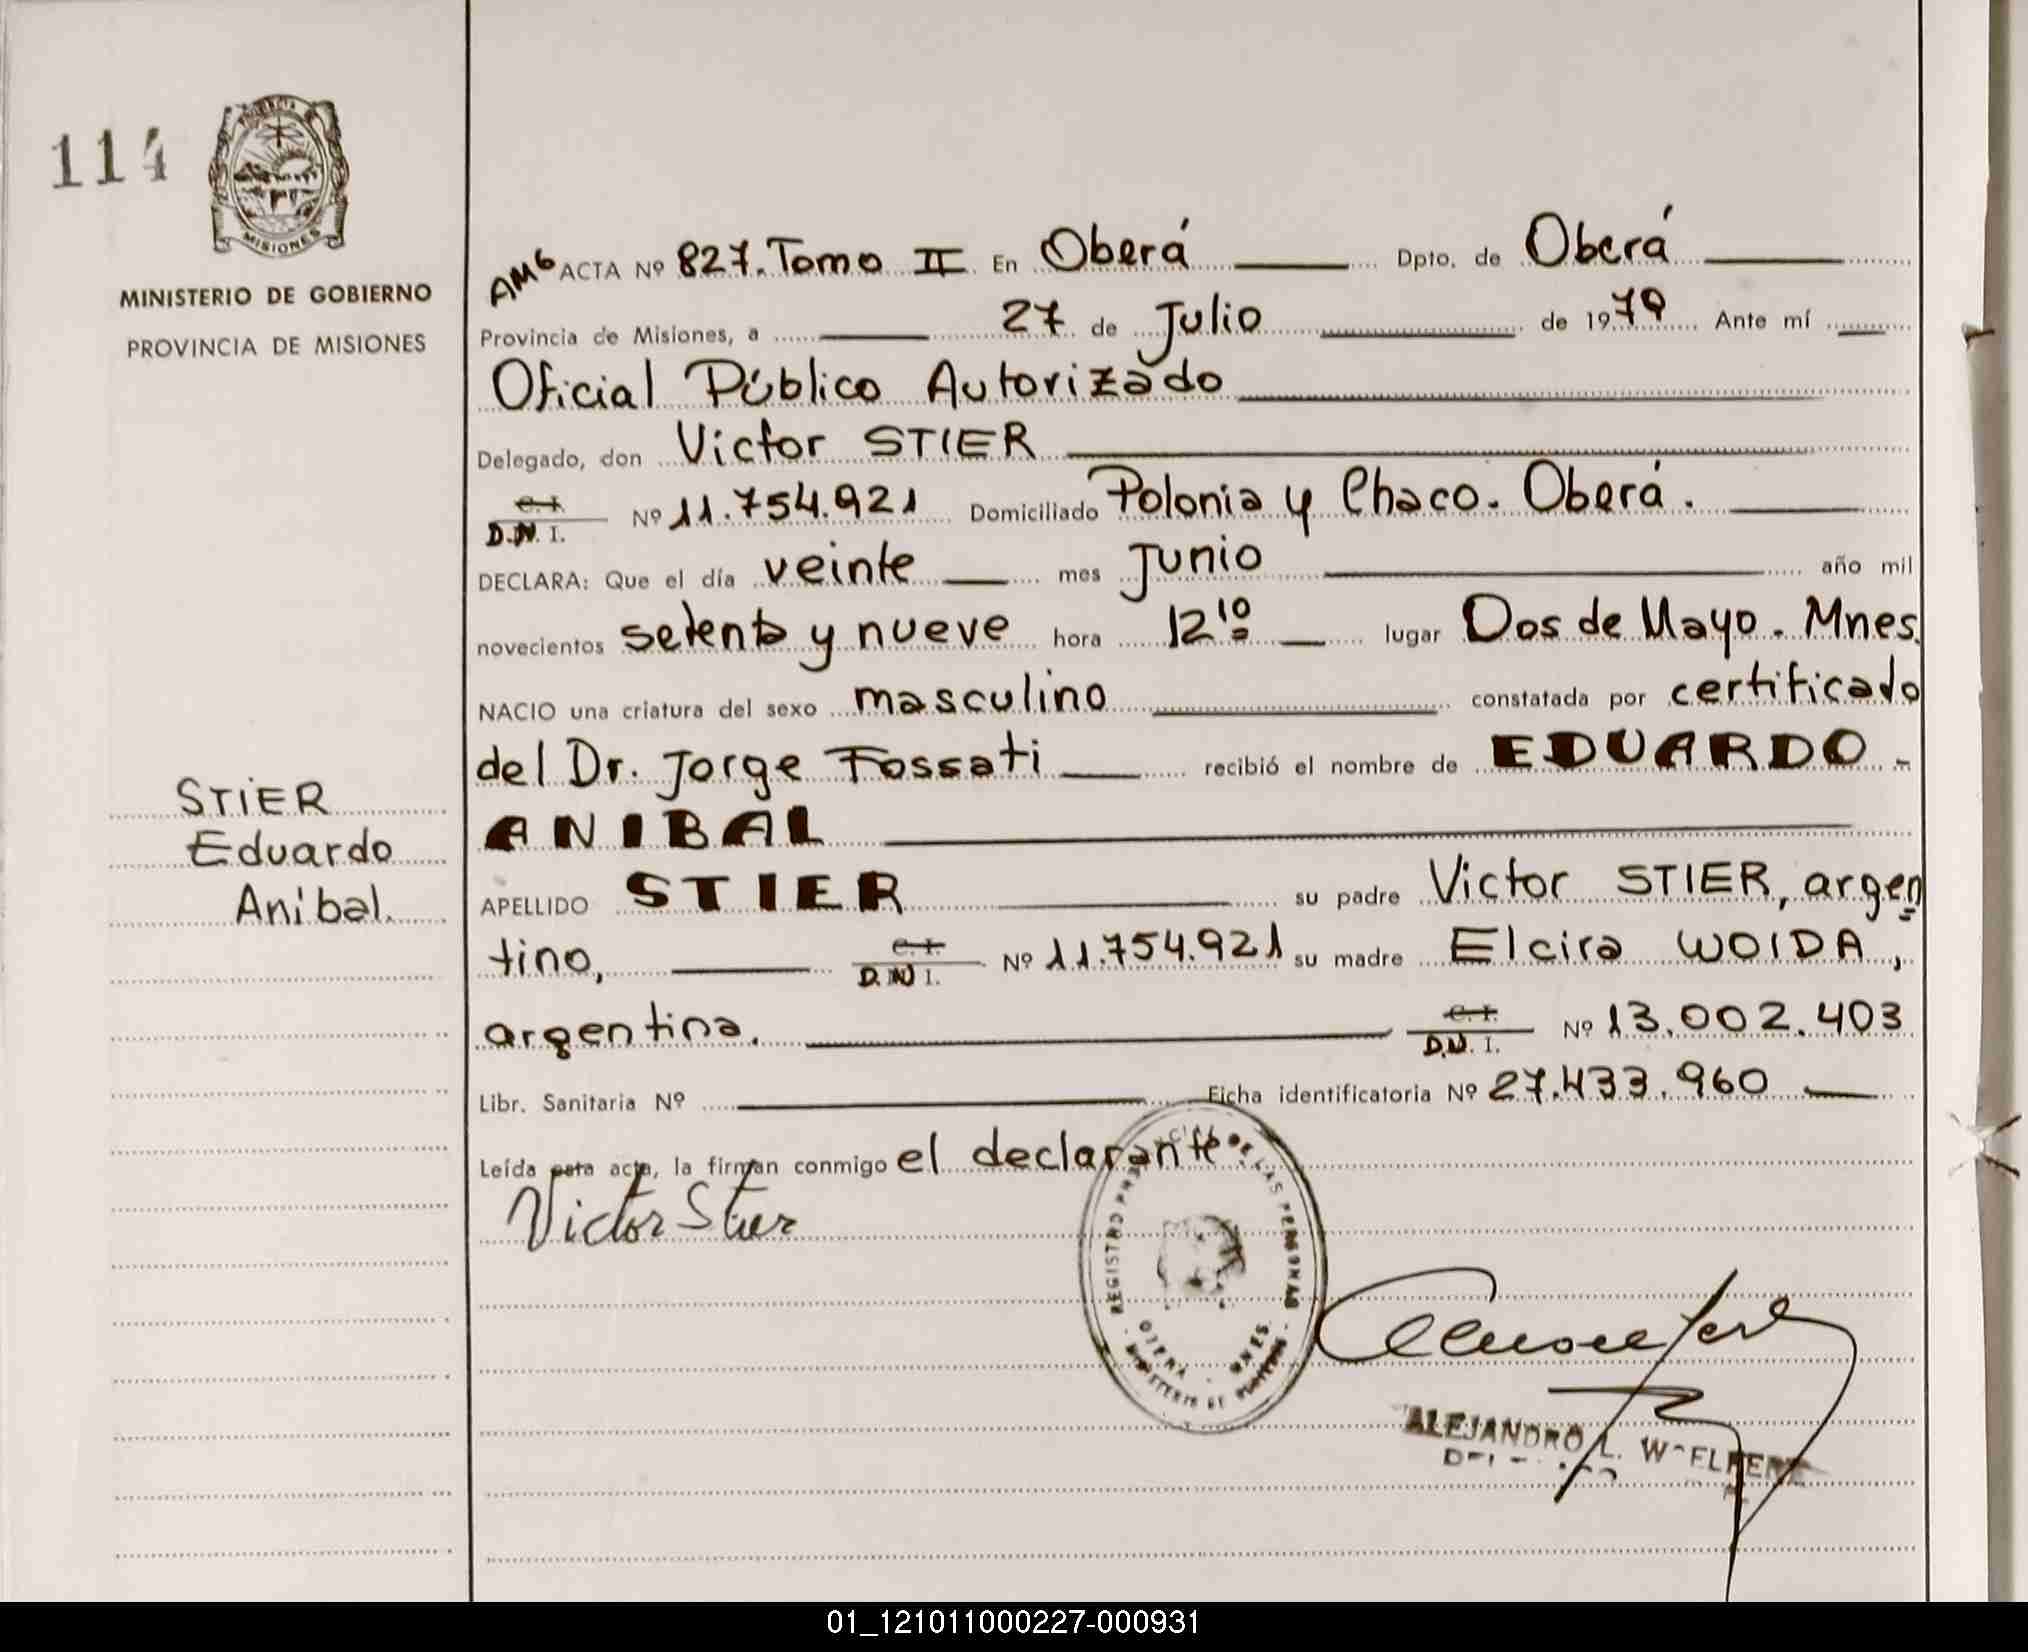 114
MISIONES
MINISTERIO DE GOBIERNO
PROVINCIA DE MISIONES
AM6 ACTA Nº 827. Tomo II En Oberá Dpto. de Oberá
Provincia de Misiones, a 27 de Julio de 1979 Ante mí
Oficial Público Autorizado
Delegado, don Victor STIER
C. I. D.N.I. Nº 11.754.921 Domiciliado Polonia y Chaco. Oberá.
DECLARA: Que el día veinte mes Junio año mil
novecientos setenta y nueve hora 12 10 lugar Dos de Mayo. Mnes.
NACIO una criatura del sexo masculino constatada por certificado
del Dr. Jorge Fossati recibió el nombre de EDUARDO -
ANIBAL
APELLIDO STIER su padre Victor STIER, argen
tino, C. I. D.N I. Nº 11.754.921 su madre Elcira WOIDA,
argentina. C. I. D.N. I. Nº 13.002.403
Libr. Sanitaria Nº Ficha identificatoria Nº 27.433.960
Leída esta acta, la firman conmigo el declarante.
Victor Stier
STIER
Eduardo
Anibal.
REGISTRO DE LAS PERSONAS
MNES.
ALEJANDRO L.
01_121011000227-000931